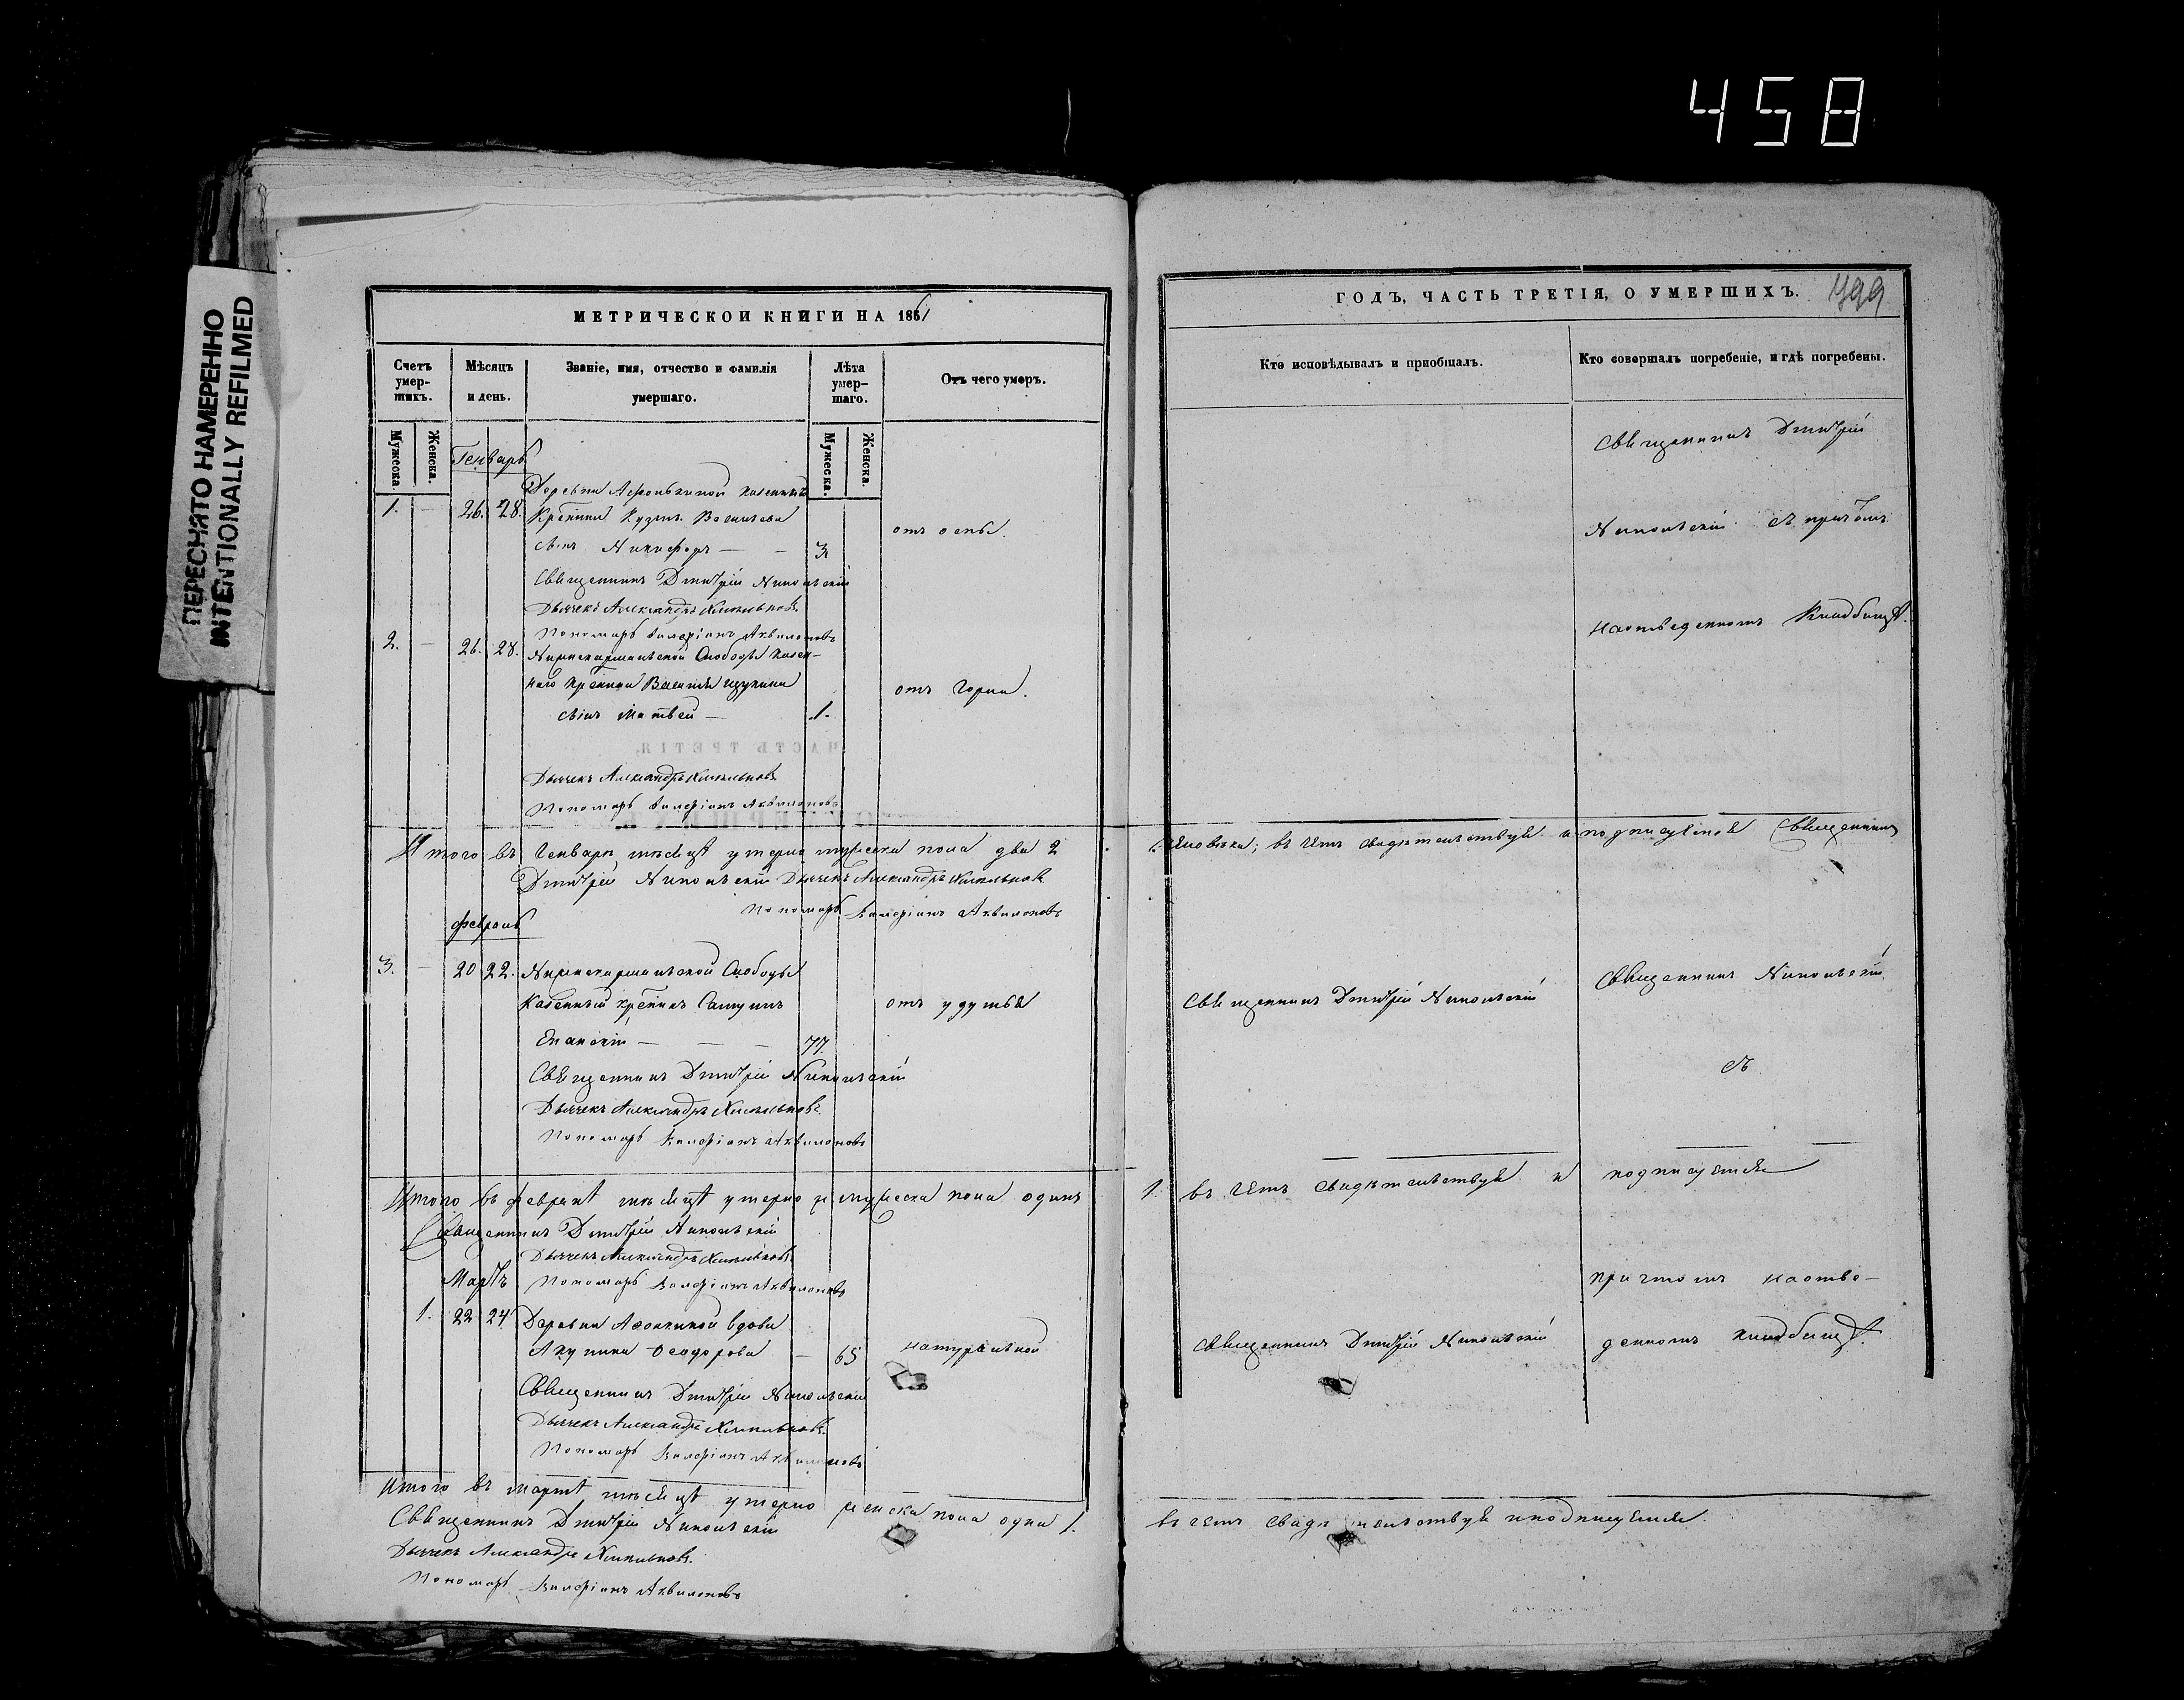 458
ПЕРЕСНЯТО НАМЕРЕННО
INTENTIONALLY REFILMED
МЕТРИЧЕСКОЙ КНИГИ НА 1861
Счетъ умер-шихъ.
Мѣсяцъ и день.
Званіе, имя, отчество и фамилія умершаго.
Лѣта умер-шаго.
Отъ чего умеръ.
Мужеска.
Женска.
Мужеска.
Женска.
Генварь
Деревни Афонькиной казеннаго
1. — 26. 28. Кр҃нина Кузмы Васильева
отъ оспы.
сынъ Никифоръ — — 3
Священникъ Дмитрій Никольскій
Дьячекъ Александръ
Пономарь Валеріанъ Аквилоновъ
2. — 26. 28. Слободы казен-
наго кр҃нина Василья
отъ горла.
сынъ Матвей — 1.
ЧАСТЬ ТРЕТІЯ,
Дьячекъ Александръ
Пономарь Валеріанъ Аквилоновъ
Итого въ Генварѣ мѣсяцѣ умерло мужеска пола два 2
Дмитрій Никольскій Дьячекъ Александръ
Пономарь Валеріанъ Аквилоновъ
Февраль
3. — 20 22. Слободы
Казенный кр҃нинъ
отъ удушья
— — — 77.
Священникъ Дмитрій Никольскій
Дьячекъ Александръ
Пономарь Валеріанъ Аквилоновъ
Итого въ Февралѣ мѣсяцѣ умерло мужеска пола одинъ
Священникъ Дмитрій Никольскій
Дьячекъ Александръ
Мартъ
Пономарь Валеріанъ Аквилоновъ
1. 22 24 Деревни Афонкиной вдова
Акулина Ѳеодорова — 65
натуральной
Священникъ Дмитрій Никольскій
Дьячекъ Александръ
Пономарь Валеріанъ Аквилоновъ
Итого въ Мартѣ мѣсяцѣ умерло женска пола одна 1.
Священникъ Дмитрій Никольскій
Дьячекъ Александръ
Пономарь Валеріанъ Аквилоновъ
ГОДЪ, ЧАСТЬ ТРЕТІЯ, О УМЕРШИХЪ.
499
Кто исповѣдывалъ и пріобщалъ.
Кто совершалъ погребеніе, и гдѣ погребены.
Священникъ Дмитрій
Никольскій съ причтомъ
на отведенномъ кладбищѣ.
человѣка; въ чемъ свидѣтельствуя и подписуемся Священникъ
Священникъ Никольскій
Священникъ Дмитрій Никольскій
съ
1. въ чемъ свидѣтельствуя и подписуемся
причтомъ на отве-
Священникъ Дмитрій Никольскій
денномъ кладбищѣ.
въ чемъ свидѣтельствуя и подписуемся.